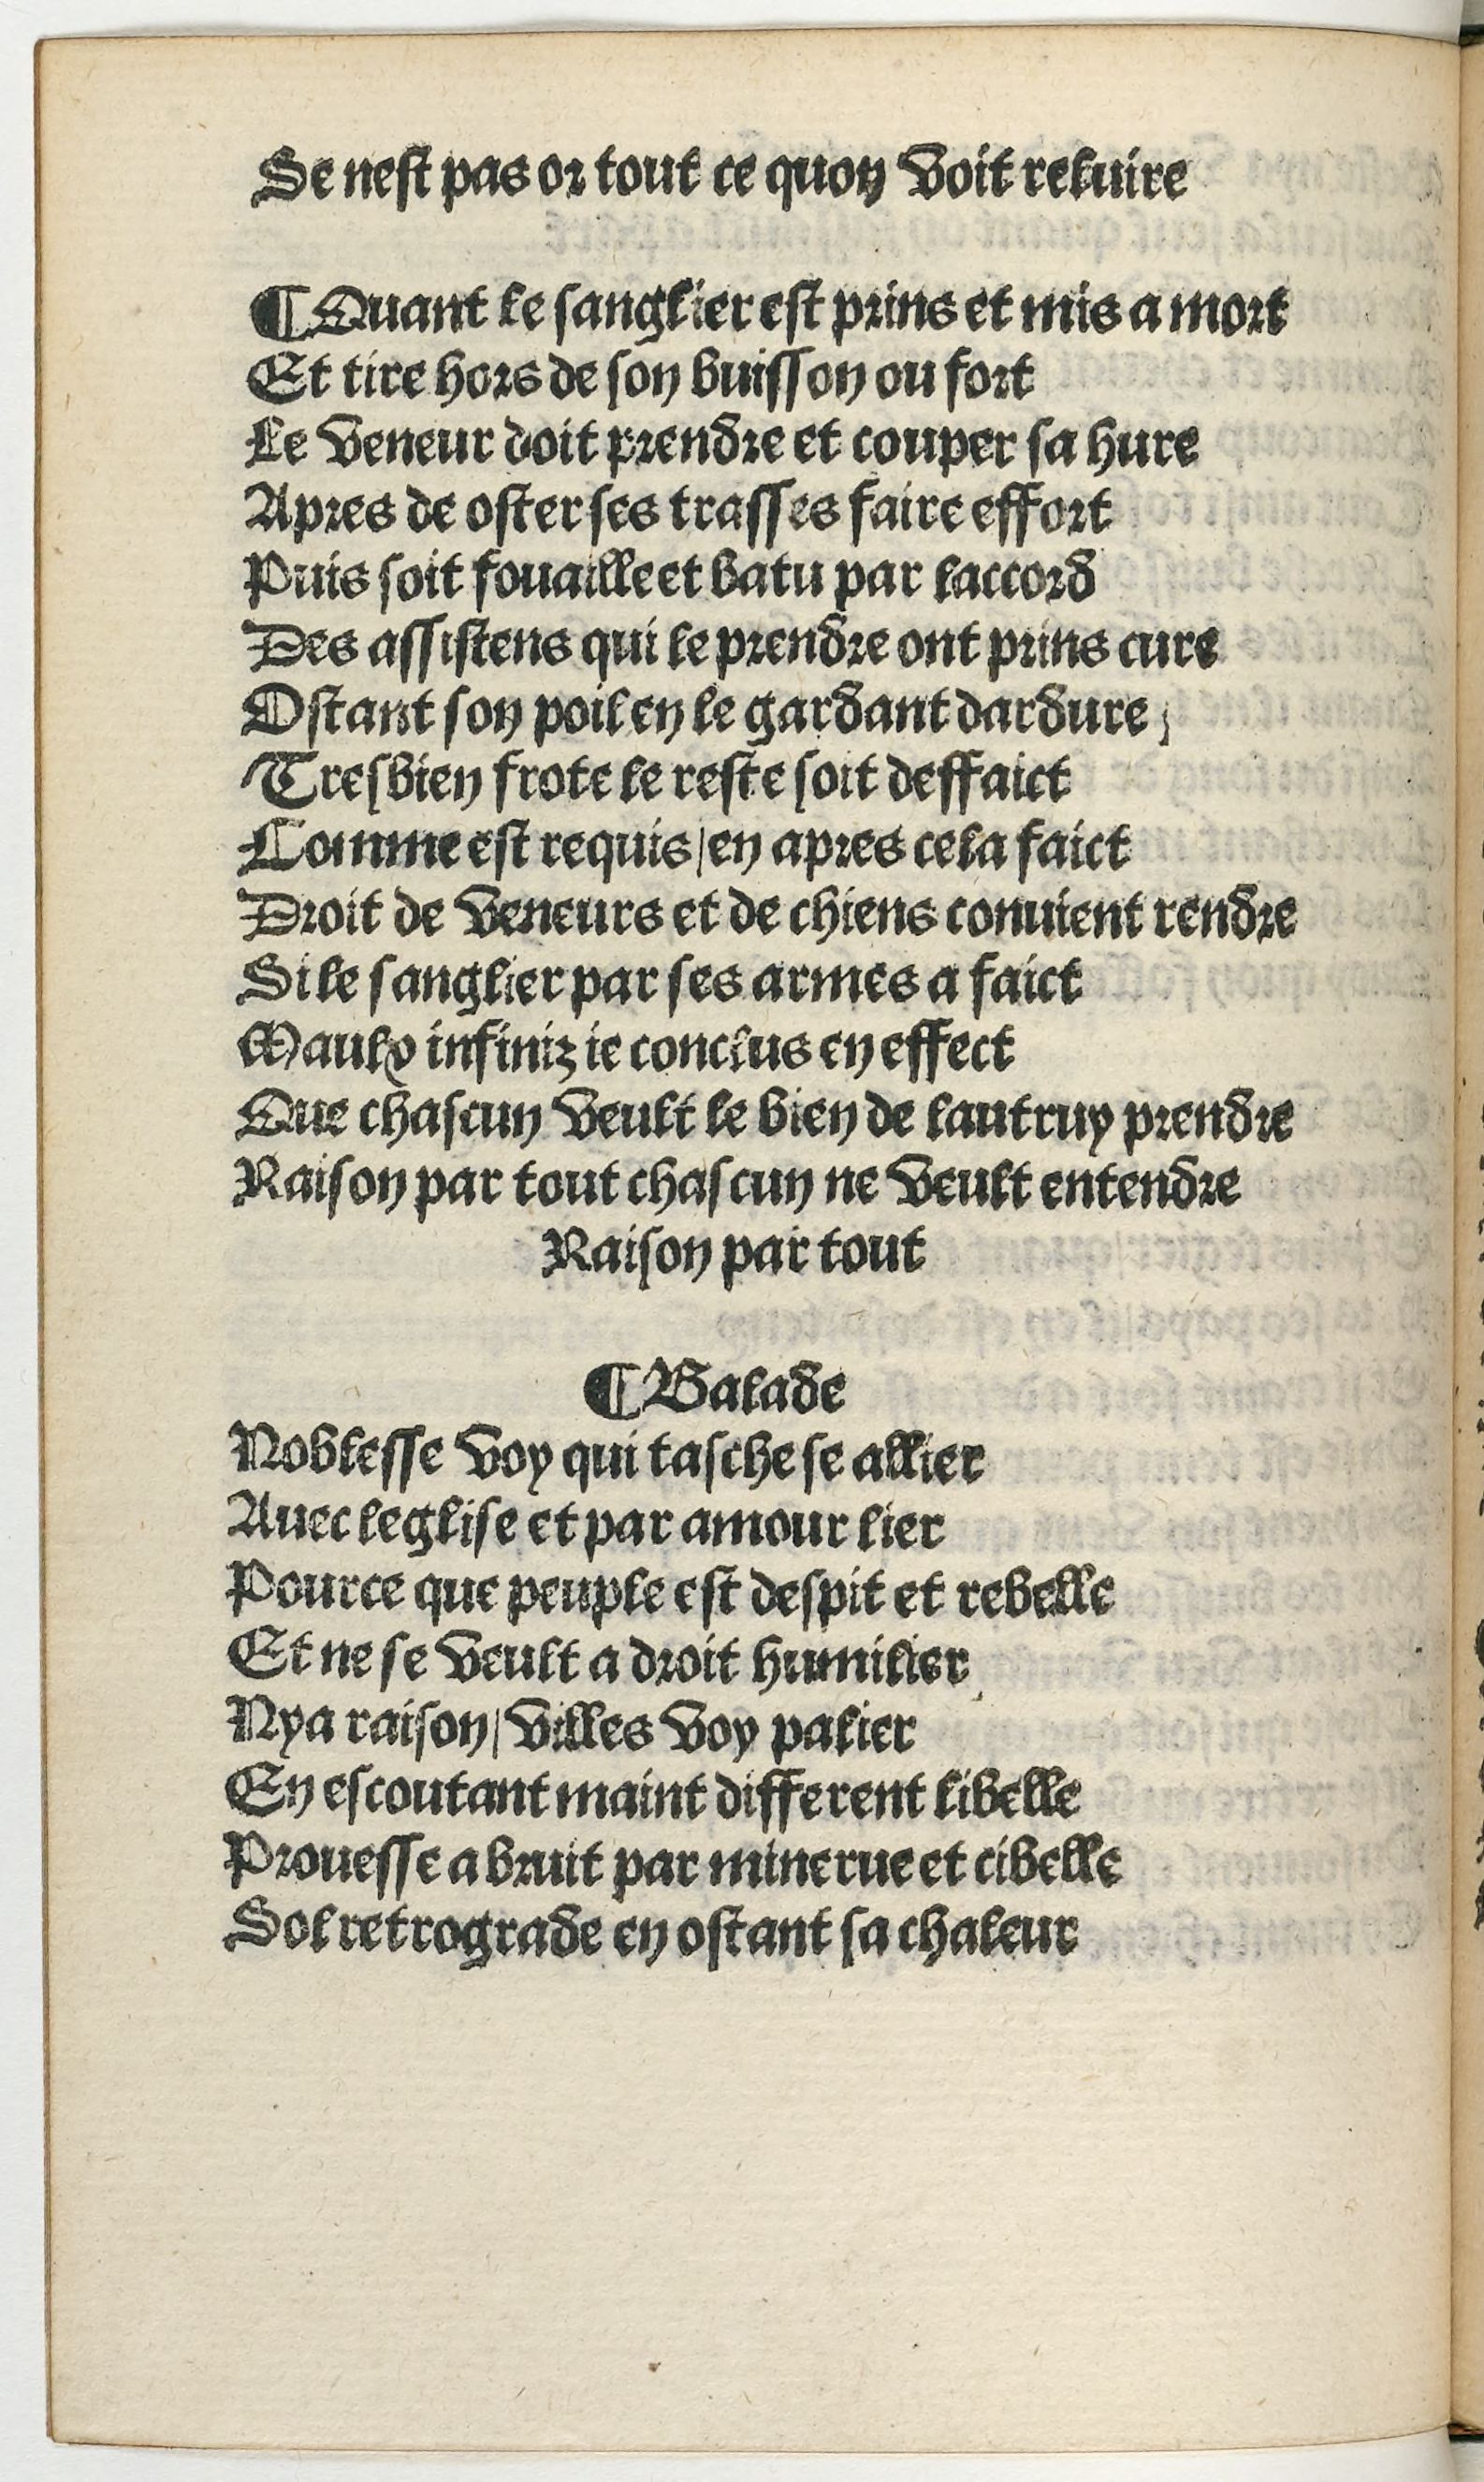 Se nest pas or tout ce quon voit reluire
¶ Quant le sanglier est prins et mis a mort
Et tire hors de son buisson ou fort
Le veneur doit prendre et couper sa hure
Apres de oster ses trasses faire effort
Puis soit fouaille et batu par laccord
Des assistens qui le prendre ont prins cure
Ostant son poil en le gardant dardure
Tresbien frote le reste soit deffaict
Comme est requis/en apres cela faict
Droit de veneurs et de chiens conuient rendre
Si le sanglier par ses armes a faict
Maulx infiniz ie conclus en effect
Que chascun veult le bien de lautruy prendre
Raison par tout chascun ne veult entendre
Raison par tout
¶ Balade
Noblesse voy qui tasche se allier
Auec leglise et par amour lier
Pource que peuple est despit et rebelle
Et ne se veult a droit humilier
Ny a raison/villes voy palier
En escoutant maint different libelle
Prouesse a bruit par minerue et cibelle
Sol retrograde en ostant sa chaleur